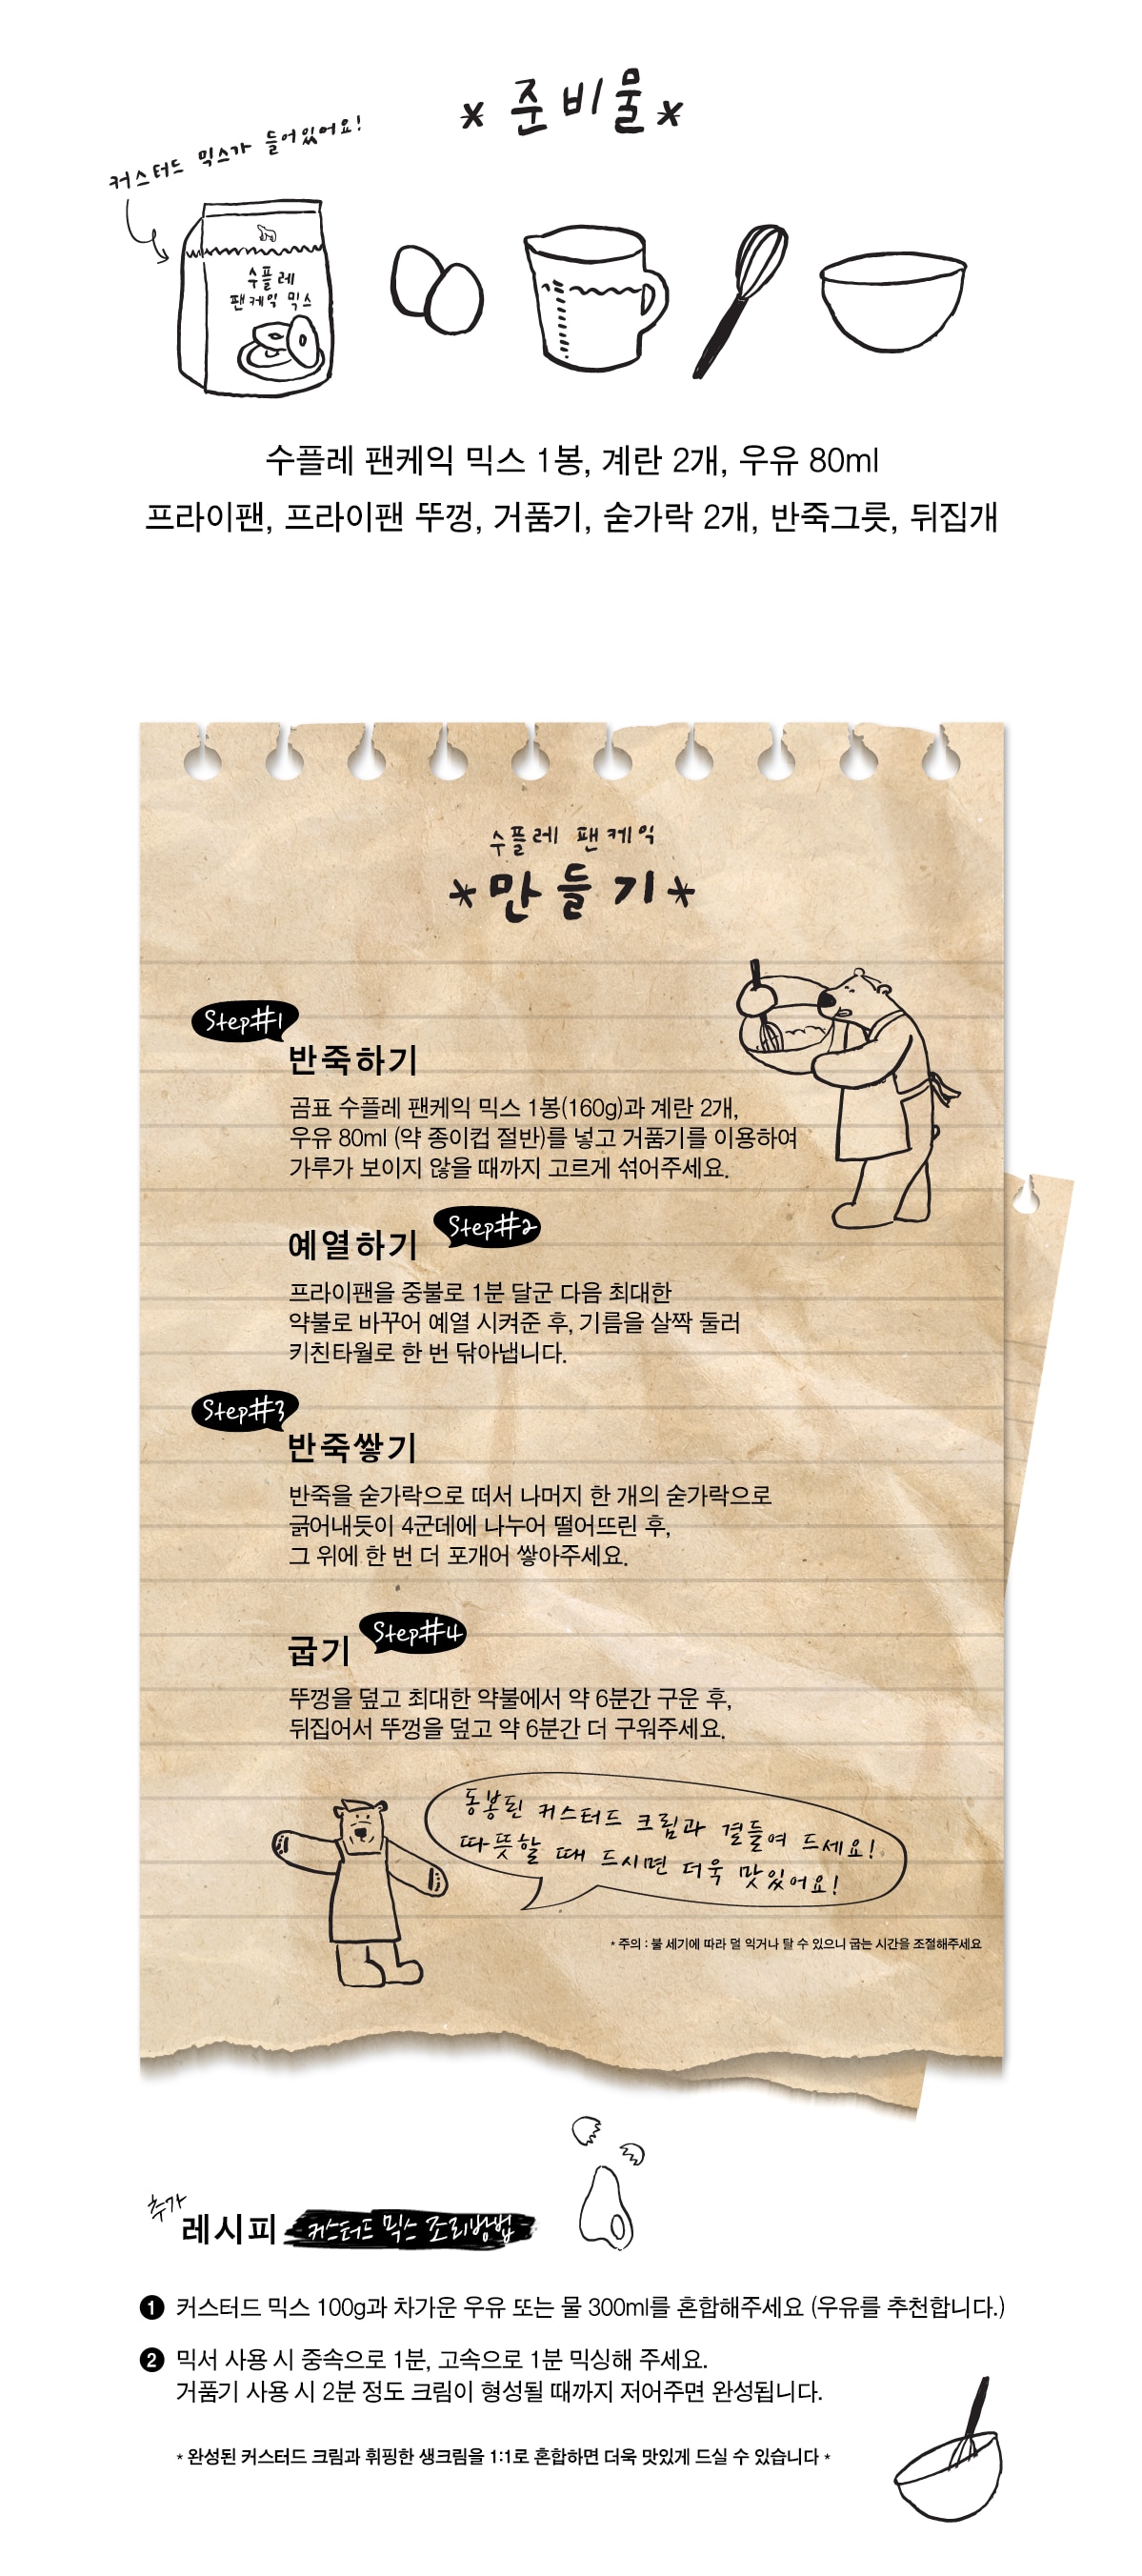 * 준비물 *
커스터드 믹스가 들어있어요!
수플레
팬케익 믹스
수플레 팬케익 믹스 1봉, 계란 2개, 우유 80ml
프라이팬, 프라이팬 뚜껑, 거품기, 숟가락 2개, 반죽그릇, 뒤집개
수플레 팬케익
*만들기*
Step#1
반죽하기
곰표 수플레 팬케익 믹스 1봉(160g)과 계란 2개,
우유 80ml (약 종이컵 절반)를 넣고 거품기를 이용하여
가루가 보이지 않을 때까지 고르게 섞어주세요.
예열하기 Step#2
프라이팬을 중불로 1분 달군 다음 최대한
약불로 바꾸어 예열 시켜준 후, 기름을 살짝 둘러
키친타월로 한 번 닦아냅니다.
Step#3
반죽쌓기
반죽을 숟가락으로 떠서 나머지 한 개의 숟가락으로
긁어내듯이 4군데에 나누어 떨어뜨린 후,
그 위에 한 번 더 포개어 쌓아주세요.
굽기 Step#4
뚜껑을 덮고 최대한 약불에서 약 6분간 구운 후,
뒤집어서 뚜껑을 덮고 약 6분간 더 구워주세요.
동봉된 커스터드 크림과 곁들여 드세요!
따뜻할 때 드시면 더욱 맛있어요!
* 주의 : 불 세기에 따라 덜 익거나 탈 수 있으니 굽는 시간을 조절해주세요
추가
레시피 커스터드 믹스 조리방법
1 커스터드 믹스 100g과 차가운 우유 또는 물 300ml를 혼합해주세요 (우유를 추천합니다.)
2 믹서 사용 시 중속으로 1분, 고속으로 1분 믹싱해 주세요.
거품기 사용 시 2분 정도 크림이 형성될 때까지 저어주면 완성됩니다.
* 완성된 커스터드 크림과 휘핑한 생크림을 1:1로 혼합하면 더욱 맛있게 드실 수 있습니다 *